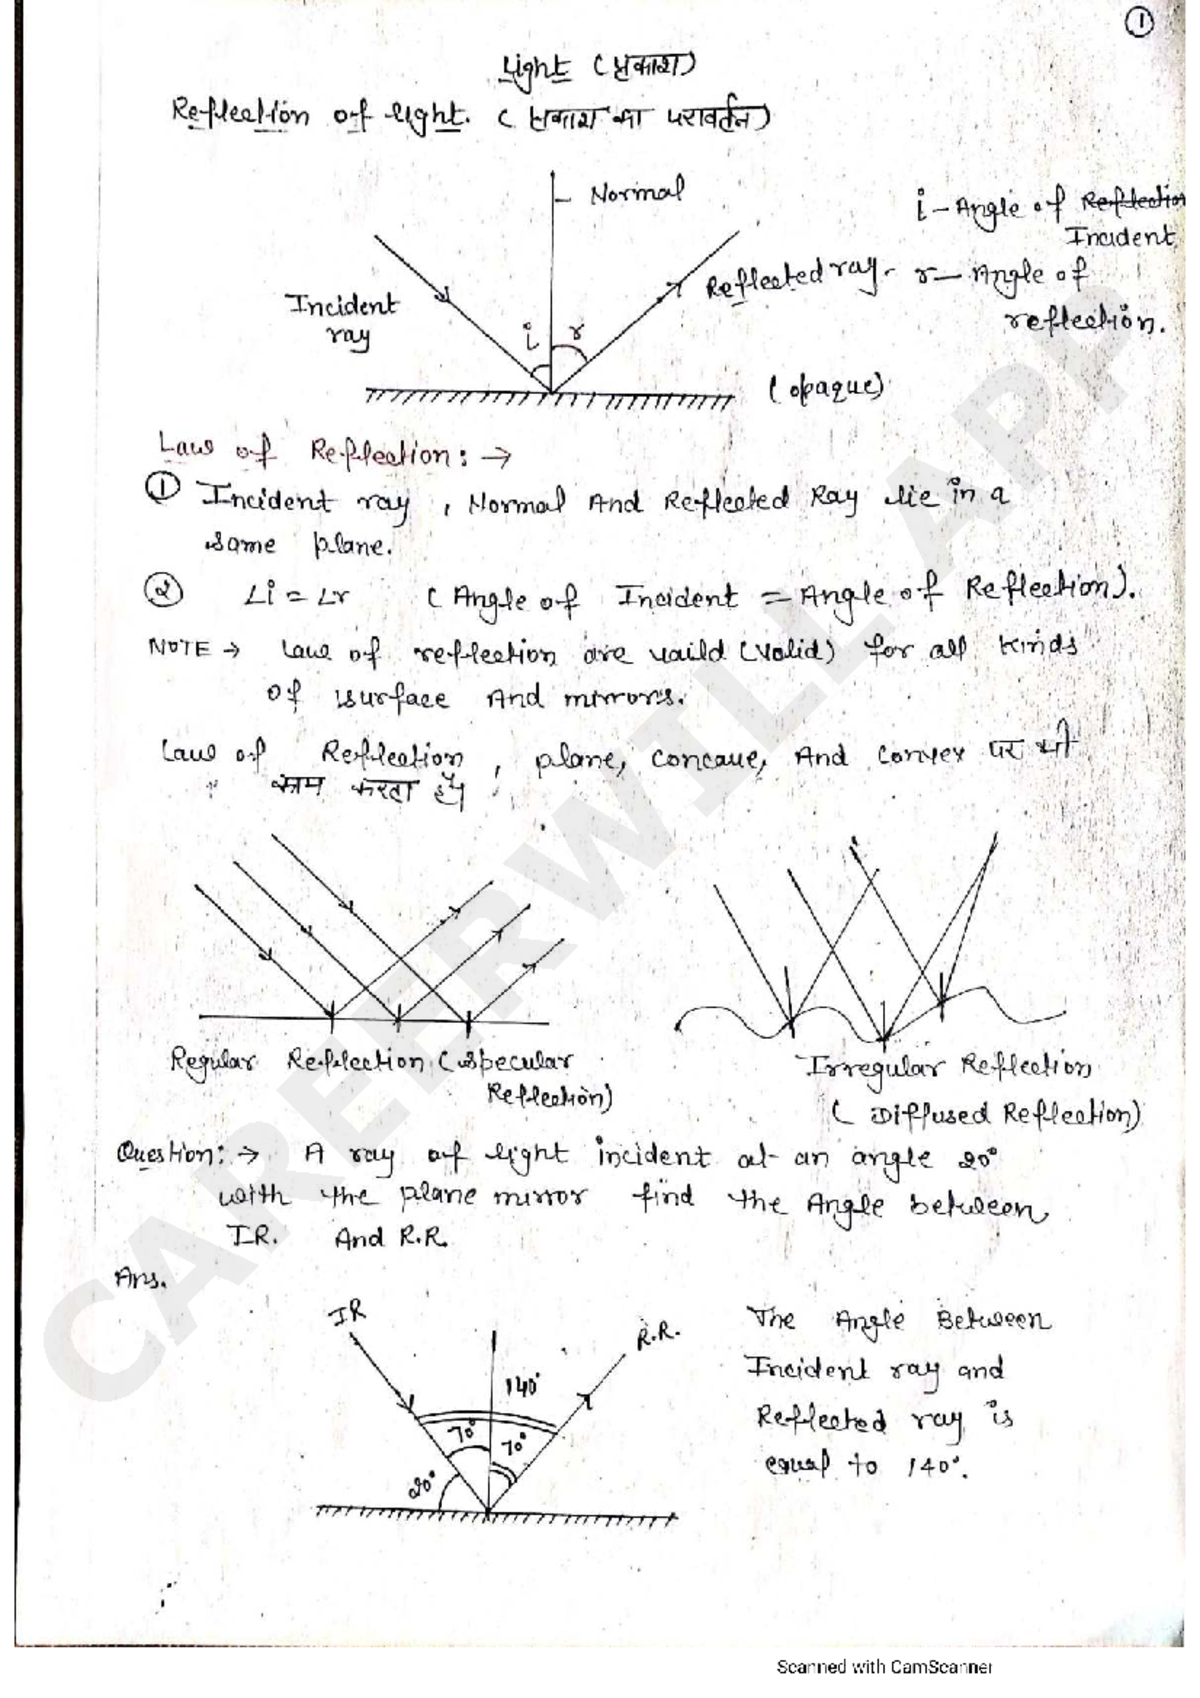 1
Light (प्रकाश)
Reflection of light. (प्रकाश का परावर्तन)
Normal
i - Angle of Reflection
Incident
Reflected ray. r - Angle of
reflection.
Incident
ray
i r
(opaque)
Law of Reflection: →
① Incident ray, Normal And Reflected Ray lie in a
same plane.
② ∠i = ∠r (Angle of Incident = Angle of Reflection).
NOTE → Law of reflection are vaild (valid) for all kinds
of surface And mirrors.
Law of Reflection, plane, concave, And convex पर भी
काम करता है।
Regular Reflection (Specular
Reflection)
Irregular Reflection
(Diffused Reflection)
Question: → A ray of light incident at an angle 20°
with the plane mirror find the Angle between
I.R. And R.R.
Ans.
IR
R.R.
140°
70° 70°
20°
The Angle Between
Incident ray and
Reflected ray is
equal to 140°.
CAREERWILL APP
Scanned with CamScanner